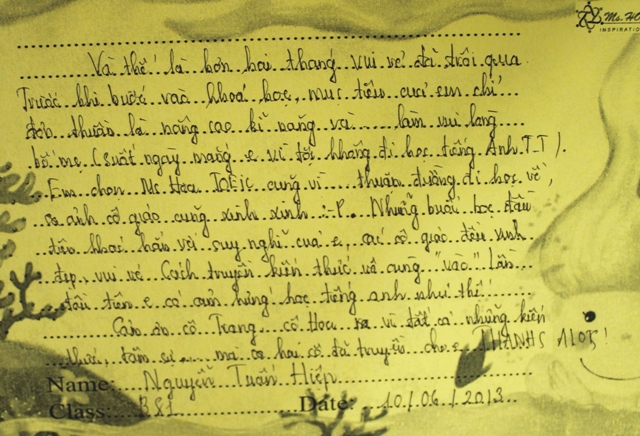 Ms. HO
INSPIRATIO
Và thế là hơn hai tháng vui vẻ đã trôi qua
Trước khi bước vào khoá học, mục tiêu của em chỉ
đơn thuần là nâng cao kĩ năng và làm vui lòng
bố mẹ (suốt ngày mắng e vì tội không đi học tiếng Anh T.T).
Em chọn Ms Hoa TOEIC cũng vì thuận đường đi học về,
cô giáo cũng xinh xinh :-P. Những buổi học đầu
tiên khác hẳn với suy nghĩ của e, các cô giáo đều xinh
đẹp, vui vẻ. Cách truyền kiến thức vô cùng "vào". Lần
đầu tiên e có cảm hứng học tiếng anh như thế.
Cảm ơn cô Trang, cô Hoa vì tất cả những kiến
thức, tâm sự mà hai cô đã truyền cho e. THANKS ALOT!
Name: Nguyễn Tuấn Hiệp
Class: 381 Date: 10/06/2013